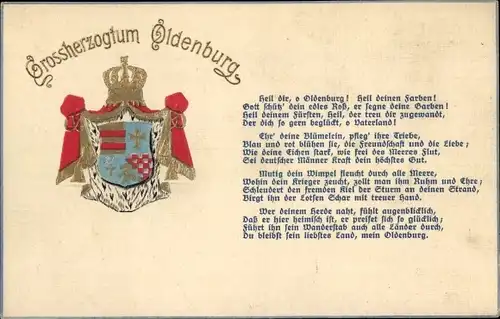 Grossherzogtum Oldenburg
Heil dir, o Oldenburg! Heil deinen Farben!
Gott schütz' dein edles Roß, er segne deine Garben!
Heil deinem Fürsten, Heil, der treu dir zugewandt,
Der dich so gern beglückt, o Vaterland!
Ehr' deine Blümelein, pfleg' ihre Triebe,
Blau und rot blühen sie, die Freundschaft und die Liebe;
Wie deine Eichen stark, wie frei des Meeres Flut,
Sei deutscher Männer Kraft dein höchstes Gut.
Mutig dein Wimpel fleucht durch alle Meere,
Wohin dein Krieger zeucht, zollt man ihm Ruhm und Ehre;
Schleudert den fremden Kiel der Sturm an deinen Strand,
Birgt ihn der Lotsen Schar mit treuer Hand.
Wer deinem Herde naht, fühlt augenblicklich,
Daß er hier heimisch ist, er preiset sich so glücklich;
Führt ihn sein Wanderstab auch alle Länder durch,
Du bleibst sein liebstes Land, mein Oldenburg.